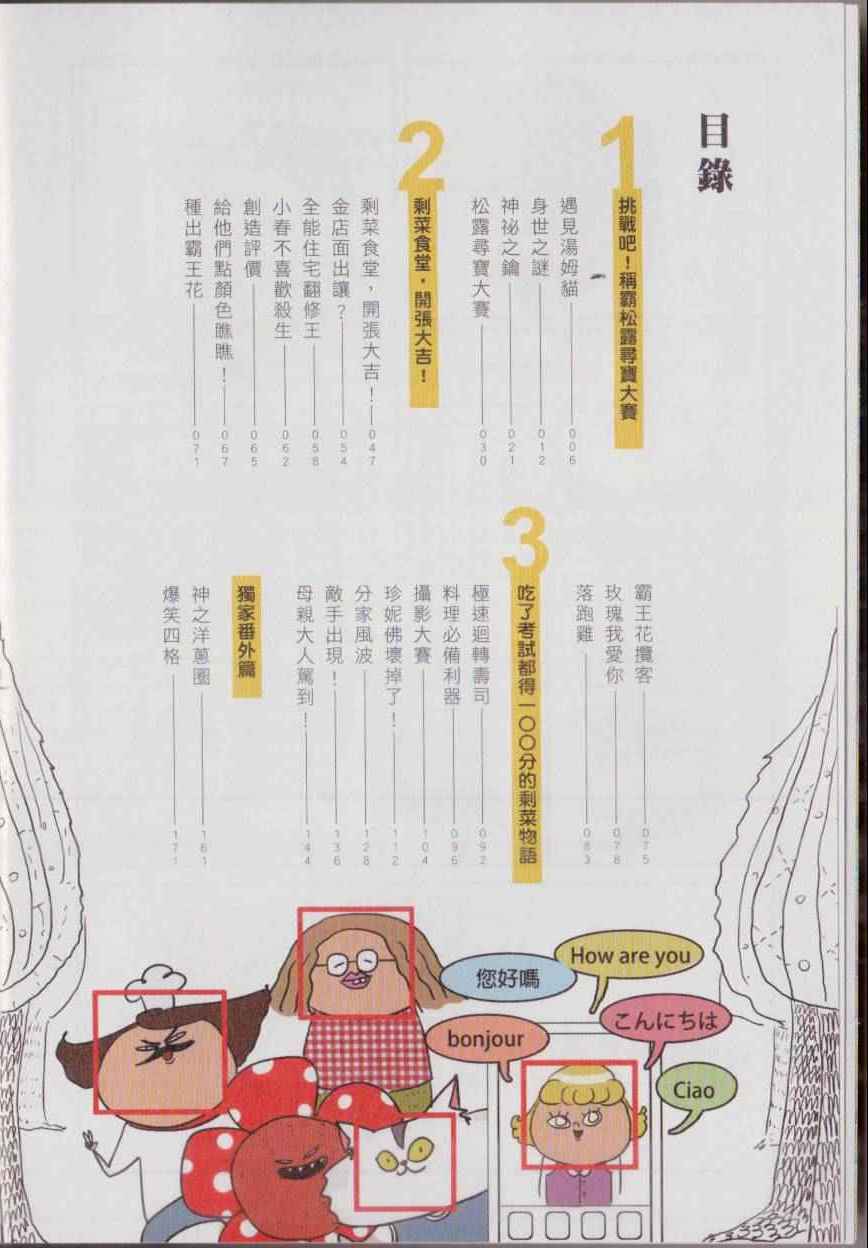 目錄
1
挑戰吧！稱霸松露尋寶大賽
遇見湯姆貓 006
身世之謎 012
神祕之鑰 021
松露尋寶大賽 030
2
剩菜食堂，開張大吉！
剩菜食堂，開張大吉！ 047
金店面出讓？ 054
全能住宅翻修王 058
小春不喜歡殺生 062
創造評價 065
給他們點顏色瞧瞧！ 067
種出霸王花 071
霸王花攬客 075
玫瑰我愛你 078
落跑雞 083
3
吃了考試都得一〇〇分的剩菜物語
極速迴轉壽司 092
料理必備利器 096
攝影大賽 104
珍妮佛壞掉了！ 112
分家風波 128
敵手出現！ 136
母親大人駕到！ 144
獨家番外篇
神之洋蔥圈 161
爆笑四格 171
您好嗎
How are you
bonjour
こんにちは
Ciao